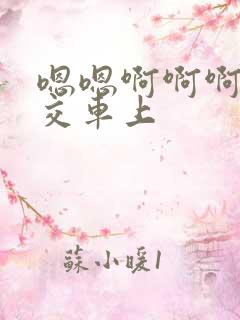 嗯嗯啊啊啊
交車上
蘇小暖1